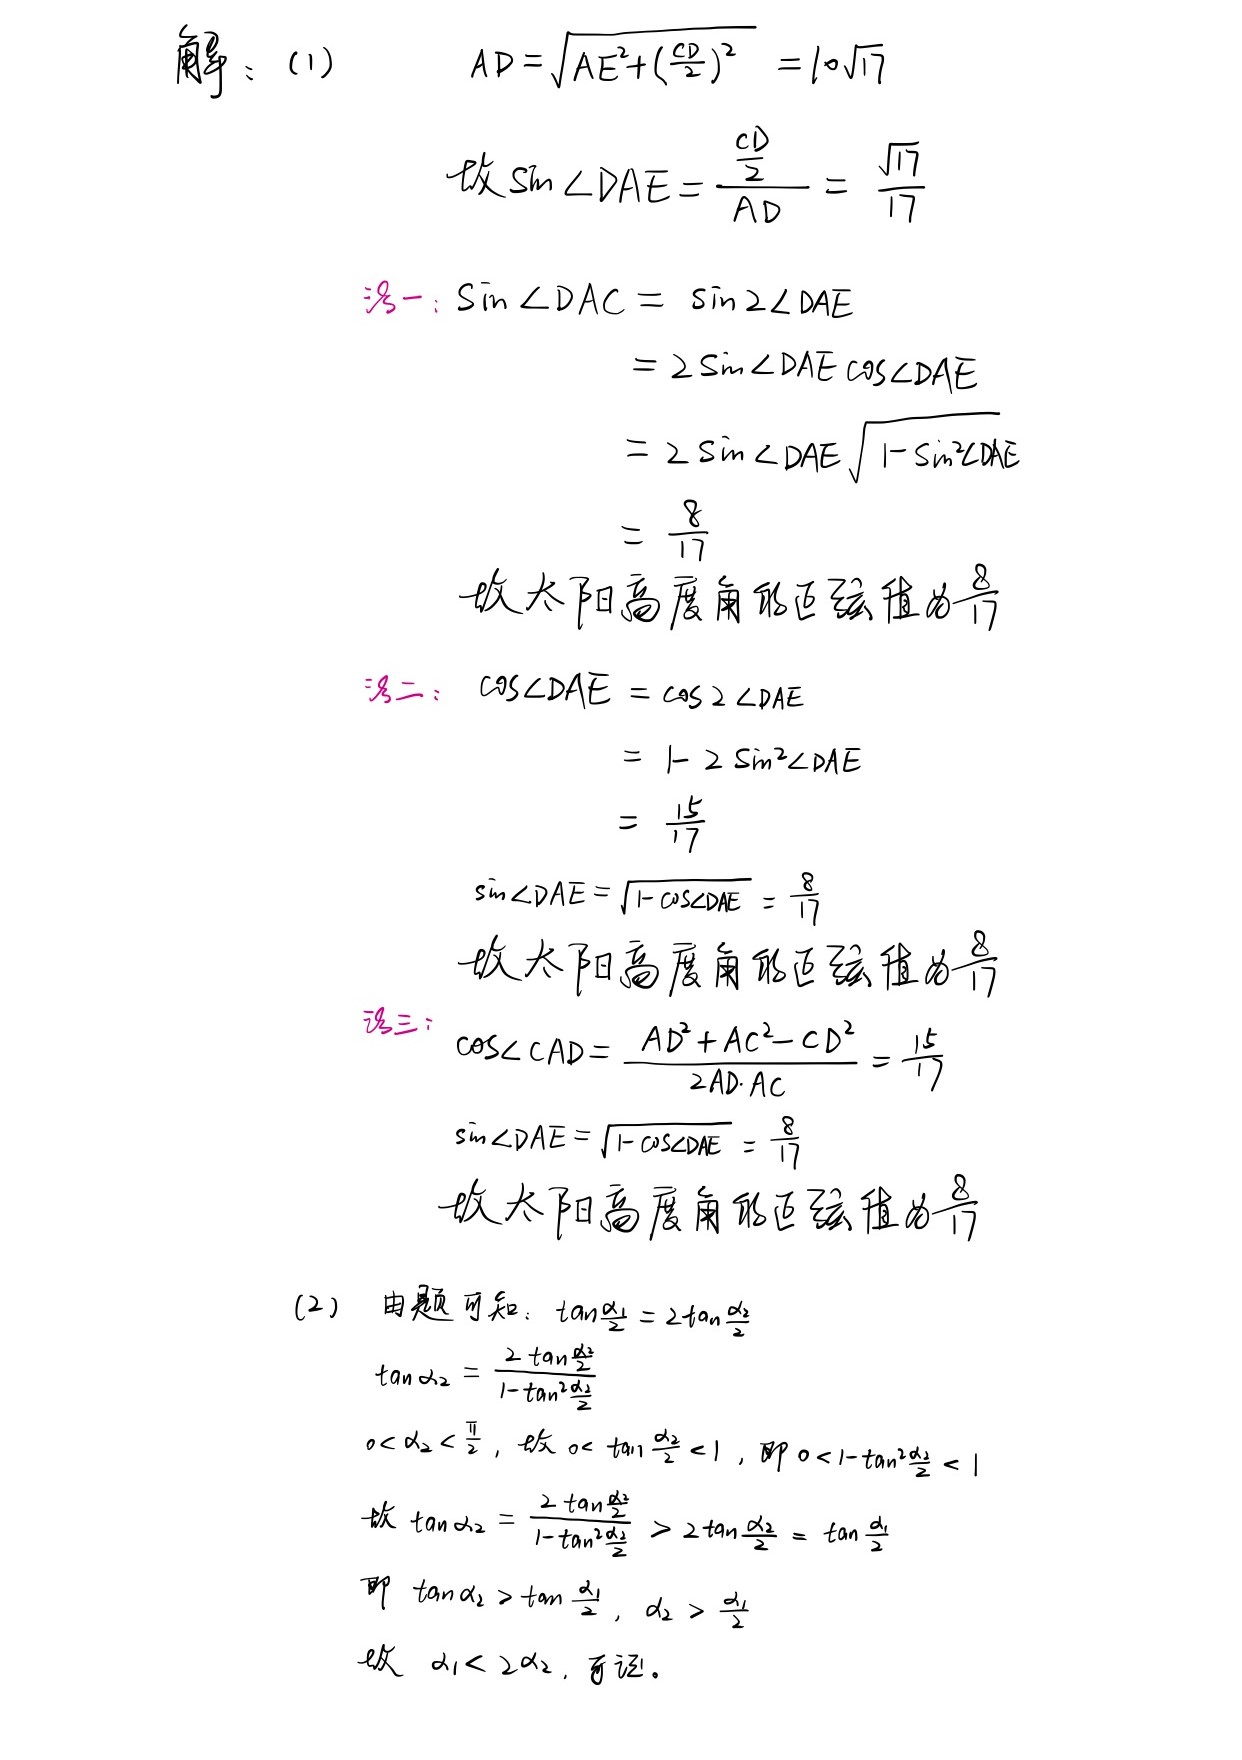 解：(1) AD=√(AE²+(CD/2)²) =10√17
故 sin∠DAE = (CD/2)/AD = √17/17
法一：sin∠DAC = sin2∠DAE
= 2sin∠DAE cos∠DAE
= 2sin∠DAE √(1-sin²∠DAE)
= 8/17
故太阳高度角的正弦值为 8/17
法二：cos∠DAE = cos2∠DAE
= 1-2sin²∠DAE
= 15/17
sin∠DAE = √(1-cos∠DAE) = 8/17
故太阳高度角的正弦值为 8/17
法三：cos∠CAD = (AD²+AC²-CD²)/(2AD·AC) = 15/17
sin∠DAE = √(1-cos∠DAE) = 8/17
故太阳高度角的正弦值为 8/17
(2) 由题可知：tan α₁/2 = 2tan α₂/2
tanα₂ = (2tan α₂/2)/(1-tan² α₂/2)
0<α₂<π/2，故 0< tan α₂/2 <1，即 0<1-tan² α₂/2 <1
故 tanα₂ = (2tan α₂/2)/(1-tan² α₂/2) > 2tan α₂/2 = tan α₁/2
即 tanα₂ > tan α₁/2，α₂ > α₁/2
故 α₁< 2α₂，可证。